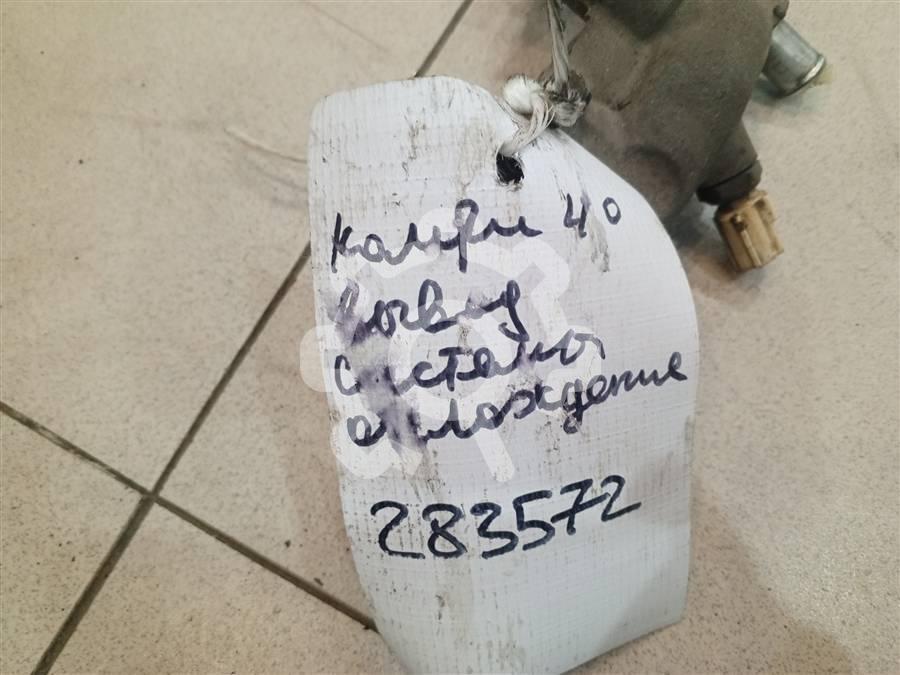 Камри 40
вывод
системы
охлаждение
283572